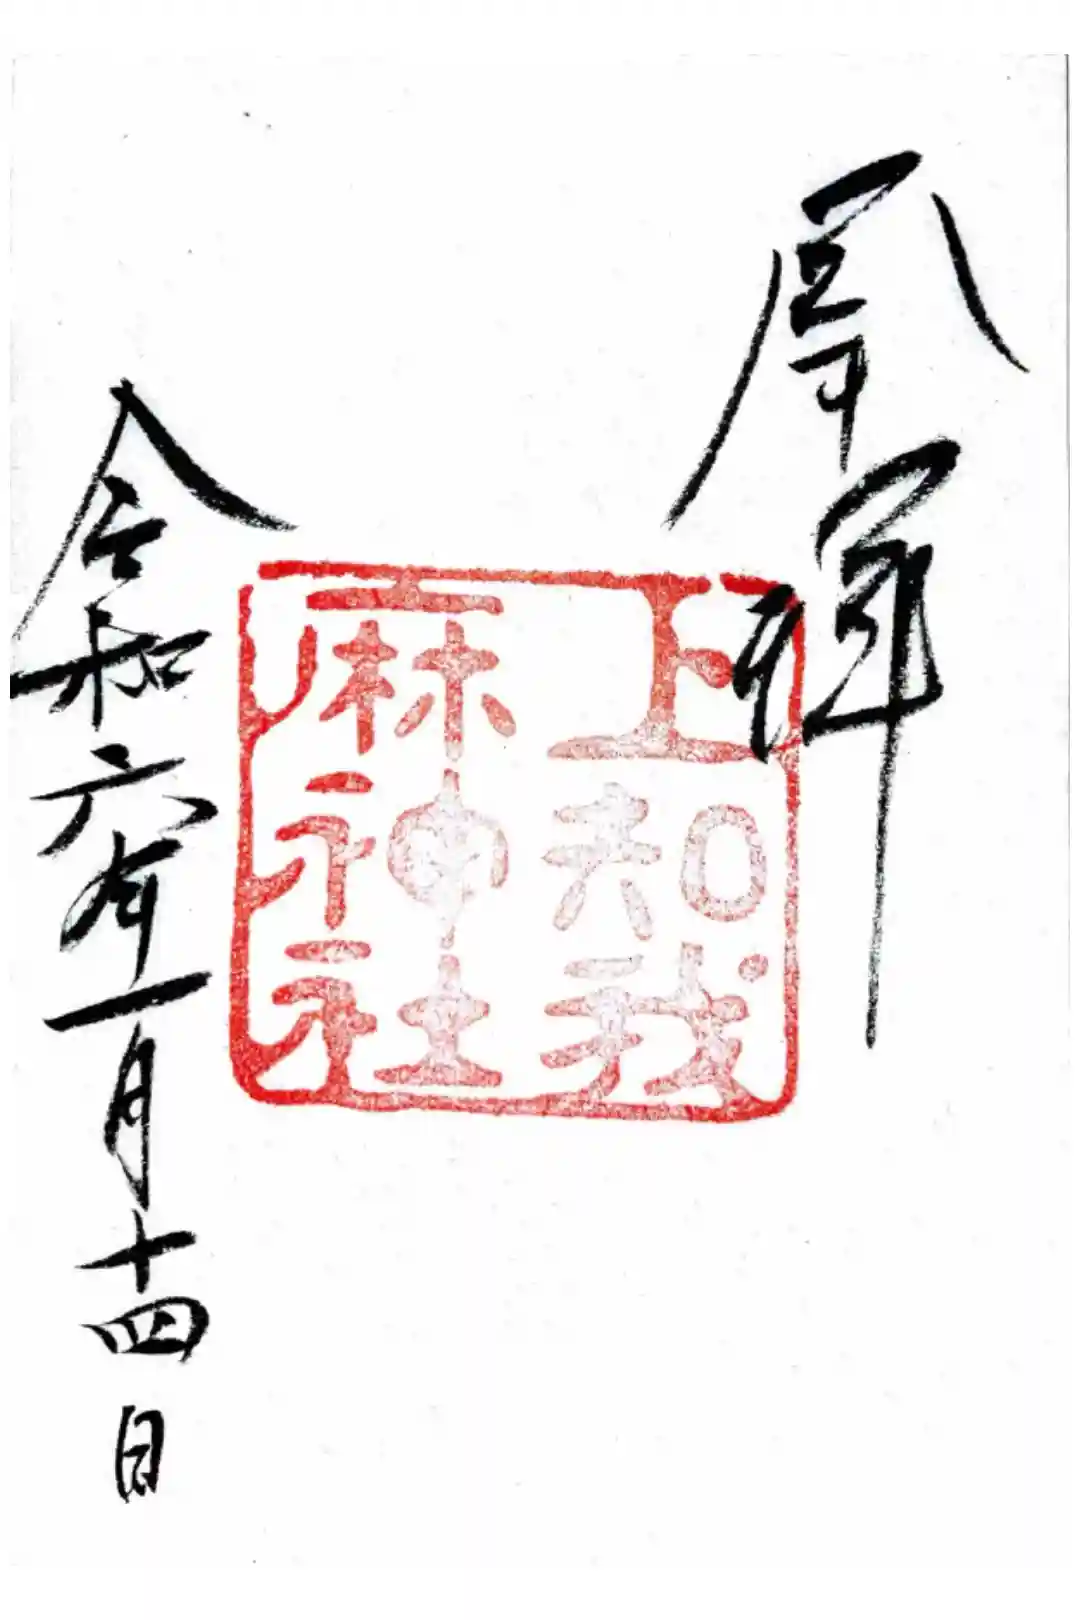 奉拝
上知我
麻神社
令和六年一月十四日